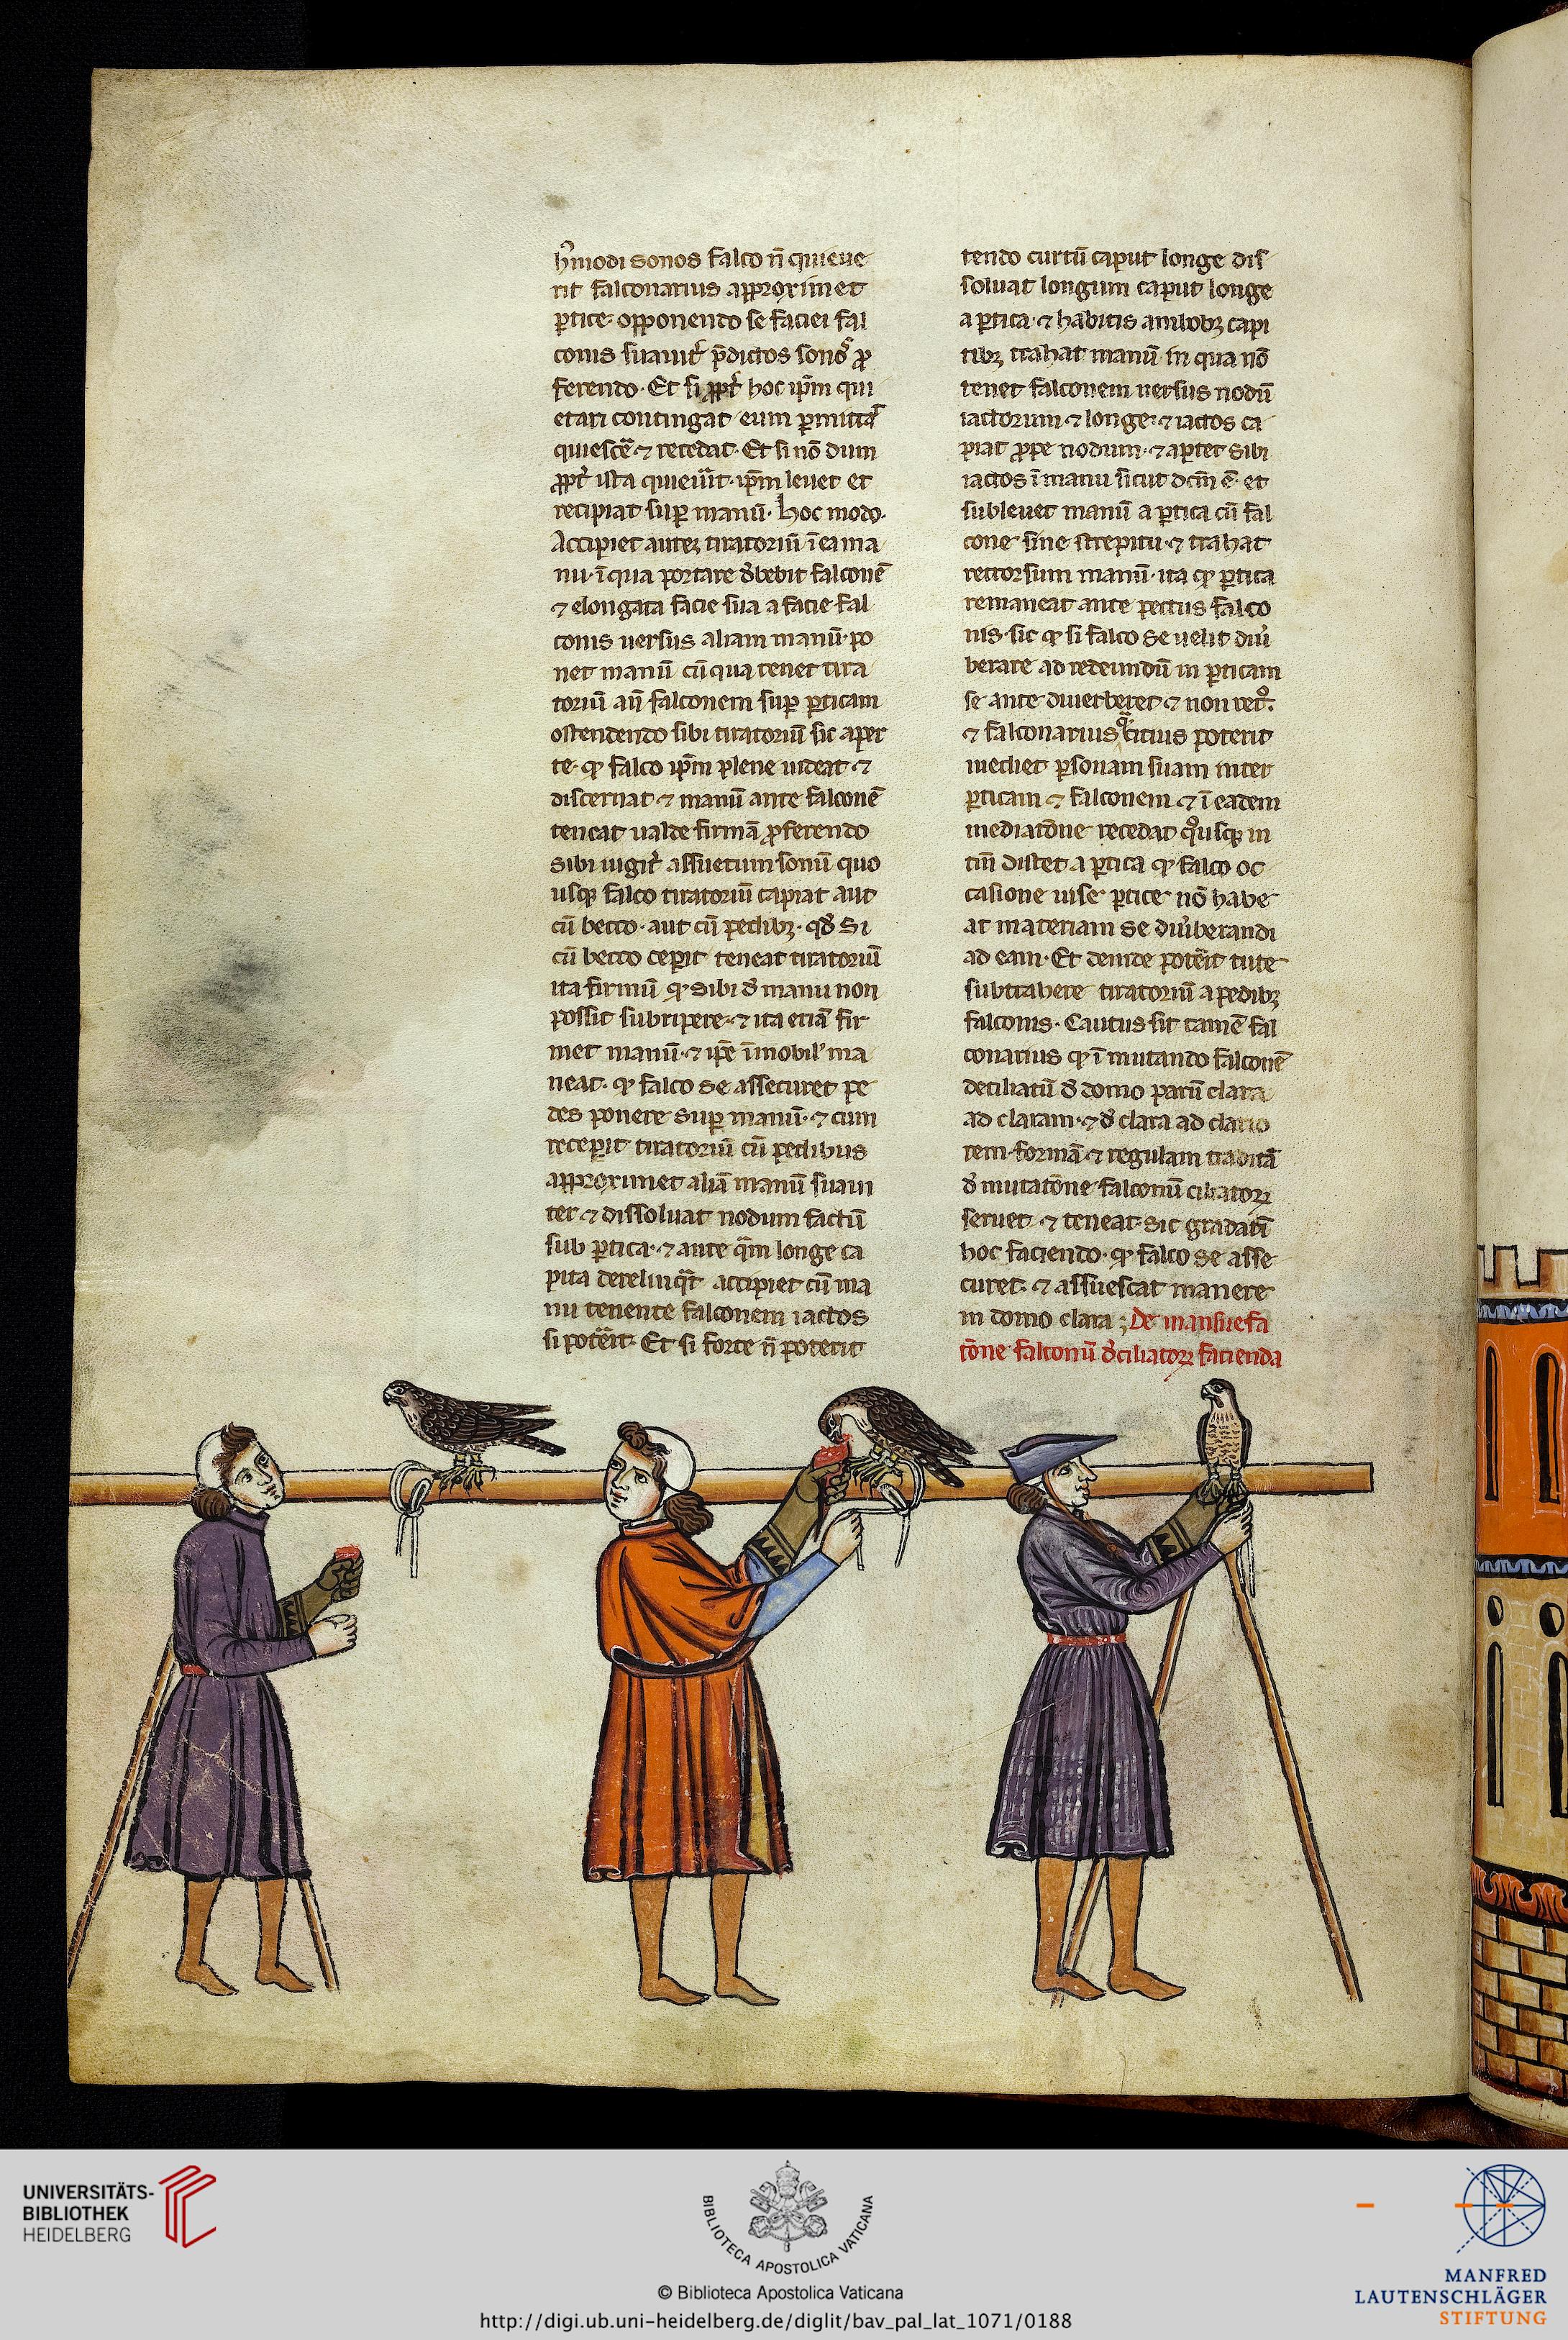 hͦmodi sonos falco n̄ quieue
rit falconarius approximet
ꝑtice· opponendo se faciei fal
conis suauit̾ p̄dictos sonos ꝓ
ferendo· Et si ꝓpt̾ hoc ip̄m qui
etari contingat eum ꝑmittat
quiescẽ· ⁊ recedat· Et si nō dum
ꝓpt̾ ista quieuit· ip̄m leuet et
recipiat suꝑ manū· hoc modo·
Accipiet autez tiratoriū ī ea ma
nu· ī qua portare debebit falconē
⁊ elongata facie sua a facie fal
conis uersus aliam manū· po
net manū cū qua tenet tira
toriū an̄ falconem suꝑ ꝑticam
ostendendo sibi tiratoriū sic aper
te· ꝙ falco ip̄m plene uideat ⁊
discernat ⁊ manū ante falconē
teneat ualde firmā ꝓferendo
sibi iugit̾ assuetum sonū quo
usqꝫ falco tiratoriū capiat aut
cū becco· aut cū pedibꝫ· qđ si
cū becco ceꝑit teneat tiratoriū
ita firmū ꝙ sibi đ manu non
possit subripere· ⁊ ita etiā fir
met manū· ⁊ ip̄e īmobil' ma
neat· ꝙ falco se assecuret pe
des ponere suꝑ manū· ⁊ cum
receꝑit tiratoriū cū pedibus
approximet aliā manū suaui
ter ⁊ dissoluat nodum factū
sub ꝑtica· ⁊ ante q̄m longe ca
pita derelinqͣt accipiet cū ma
nu tenente falconem iactos
si potẽit· Et si forte n̄ poterit
tendo curtū caput longe dis
soluat longum caput longe
a ꝑtica· ⁊ habitis ambobꝫ capi
tibꝫ trahat manū in qua nō
tenet falconem uersus nodū
iactorum ⁊ longe· ⁊ iactos ca
piat ꝓpe nodum· ⁊ aptet sibi
iactos ī manu sicut dc̄m ē· et
subleuet manū a ꝑtica cū fal
cone sine strepitu· ⁊ trahat
retrorsum manū· ita ꝙ ꝑtica
remaneat ante pectus falco
nis· sic ꝙ si falco se uelit diu̾
berare ad redeundū in ꝑticam
se ante diuerberet ⁊ non retͦ·
⁊ falconarius qͦ citius poterit
mediet ꝑsonam suam inter
ꝑticam ⁊ falconem ⁊ ī eadem
mediatōne recedat qͦusqꝫ in
tm̄ distet a ꝑtica ꝙ falco oc
casione uise ꝑtice nō habe
at materiam se diu̾berandi
ad eam· Et deinde potẽit tute
subtrahere tiratoriū a pedibꝫ
falconis· Cautus sit tamē fal
conarius ꝙ ī mutando falconē
deciliatū đ domo parū clara
ad claram· ⁊ đ clara ad clario
rem· formā ⁊ regulam traditā
đ mutatōne falconū ciliatoꝝ
seruet· ⁊ teneat sic gradatī
hoc faciendo· ꝙ falco se asse
curet· ⁊ assuescat manere
in domo clara ; De mansuefa
tōne falconū đciliatoꝝ facienda
UNIVERSITÄTS-
BIBLIOTHEK
HEIDELBERG
BIBLIOTECA APOSTOLICA VATICANA
© Biblioteca Apostolica Vaticana
http://digi.ub.uni-heidelberg.de/diglit/bav_pal_lat_1071/0188
MANFRED
LAUTENSCHLÄGER
STIFTUNG